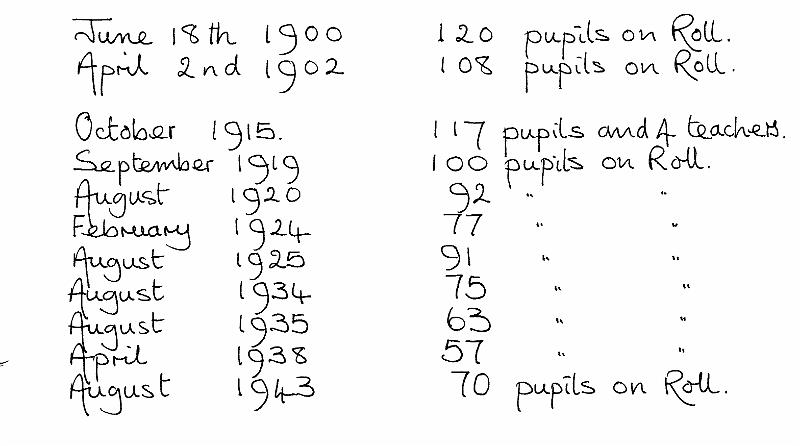 June 18th 1900 120 pupils on Roll.
April 2nd 1902 108 pupils on Roll.
October 1915. 117 pupils and 4 teachers.
September 1919 100 pupils on Roll.
August 1920 92 " "
February 1924 77 " "
August 1925 91 " "
August 1934 75 " "
August 1935 63 " "
April 1938 57 " "
August 1943 70 pupils on Roll.